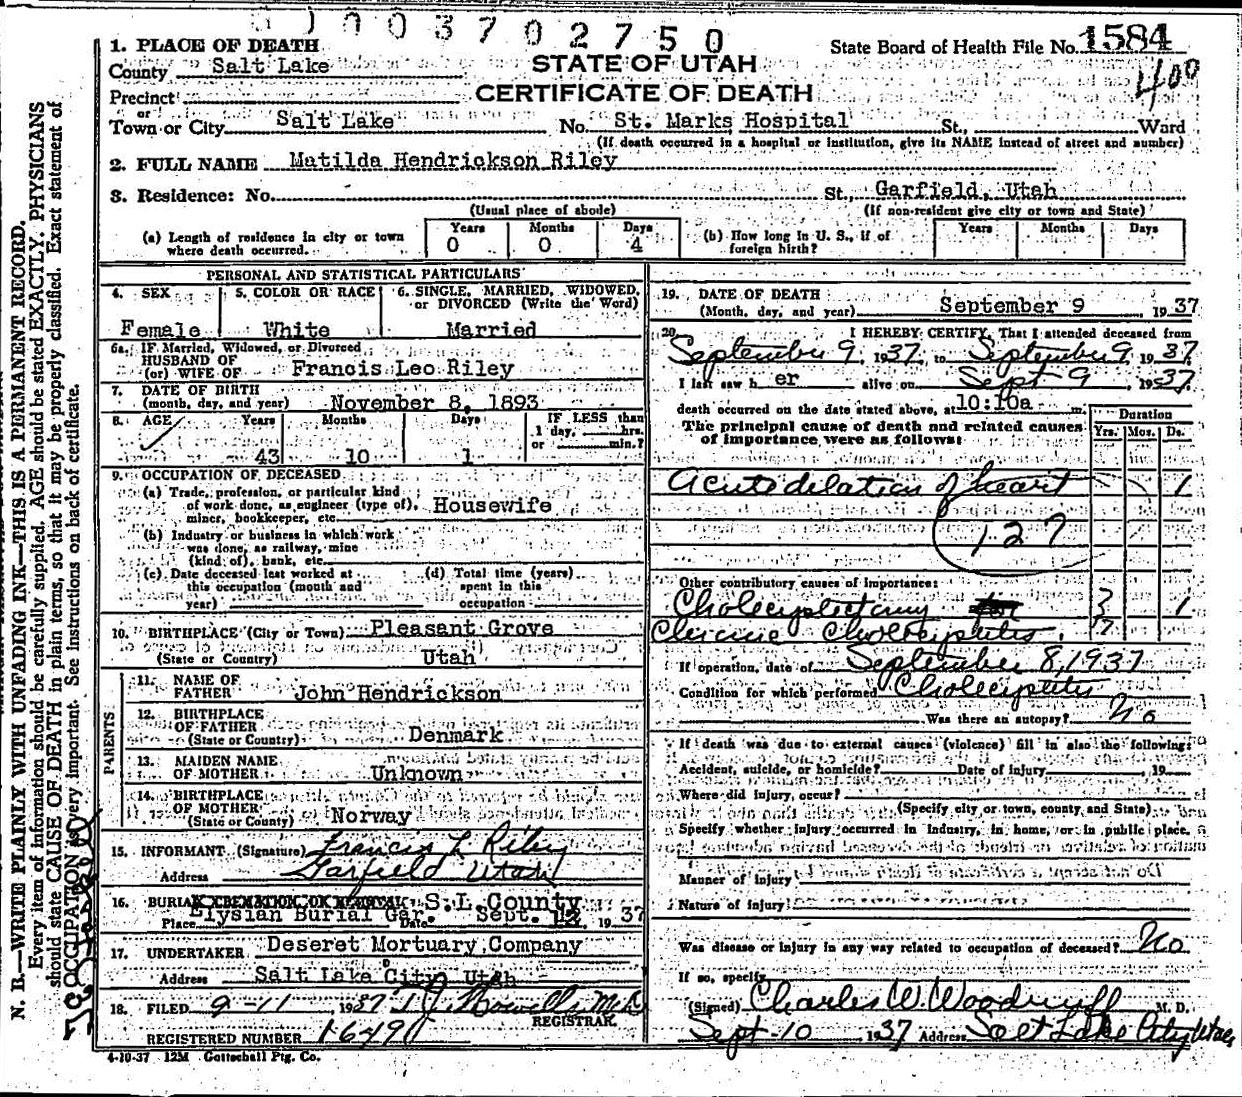 51003702750
State Board of Health File No. 1584
400
1. PLACE OF DEATH
County Salt Lake
STATE OF UTAH
Precinct
CERTIFICATE OF DEATH
or
Town or City Salt Lake No. St. Marks Hospital St., Ward
(If death occurred in a hospital or institution, give its NAME instead of street and number)
2. FULL NAME Matilda Hendrickson Riley
3. Residence: No. St., Garfield, Utah
(Usual place of abode) (If non-resident give city or town and State)
(a) Length of residence in city or town where death occurred. Years 0 Months 0 Days 4
(b) How long in U. S., if of foreign birth? Years Months Days
PERSONAL AND STATISTICAL PARTICULARS
4. SEX Female
5. COLOR OR RACE White
6. SINGLE, MARRIED, WIDOWED, or DIVORCED (Write the Word) Married
6a. IF Married, Widowed, or Divorced
HUSBAND OF
(or) WIFE OF Francis Leo Riley
7. DATE OF BIRTH
(month, day, and year) November 8, 1893
8. AGE Years 43 Months 10 Days 1
IF LESS than 1 day, hrs. or min.?
9. OCCUPATION OF DECEASED
(a) Trade, profession, or particular kind
of work done, as engineer (type of), Housewife
miner, bookkeeper, etc.
(b) Industry or business in which work
was done, as railway, mine
(kind of), bank, etc.
(c) Date deceased last worked at
this occupation (month and
year)
(d) Total time (years)
spent in this
occupation
10. BIRTHPLACE (City or Town) Pleasant Grove
(State or Country) Utah
PARENTS
11. NAME OF
FATHER John Hendrickson
12. BIRTHPLACE
OF FATHER
(State or Country) Denmark
13. MAIDEN NAME
OF MOTHER Unknown
14. BIRTHPLACE
OF MOTHER
(State or County) Norway
15. INFORMANT (Signature) Francis L Riley
Address Garfield Utah
16. BURIAL, CREMATION, OR REMOVAL S.L. County
Place Elysian Burial Gar. Date Sept. 12 1937
17. UNDERTAKER Deseret Mortuary Company
Address Salt Lake City, Utah
18. FILED 9-11 1937 Howells M.D.
REGISTRAR.
REGISTERED NUMBER 1649
4-10-37 12M Gottschall Ptg. Co.
19. DATE OF DEATH
(Month, day, and year) September 9 1937
20. I HEREBY CERTIFY, That I attended deceased from
September 9 1937, to September 9 1937
I last saw her alive on Sept 9, 1937
death occurred on the date stated above, at 10:10a m.
The principal cause of death and related causes
of importance were as follows:
Duration
Yrs. Mos. Ds.
Acute dilation of heart 1
127
Other contributory causes of importance:
Cholecystectomy 1
Chronic Cholecystitis
If operation, date of September 8, 1937
Condition for which performed Cholecystitis
Was there an autopsy? No
If death was due to external causes (violence) fill in also the following:
Accident, suicide, or homicide? Date of injury , 19
Where did injury occur?
(Specify city or town, county and State)
Specify whether injury occurred in industry, in home, or in public place.
Manner of injury
Nature of injury
Was disease or injury in any way related to occupation of deceased? No
If so, specify
(Signed) Charles W. Woodruff M. D.
Sept-10 1937 Address Salt Lake City Utah
N. B.—WRITE PLAINLY WITH UNFADING INK—THIS IS A PERMANENT RECORD.
Every item of information should be carefully supplied. AGE should be stated EXACTLY. PHYSICIANS
should state CAUSE OF DEATH in plain terms, so that it may be properly classified. Exact statement of
OCCUPATION is very important. See instructions on back of certificate.